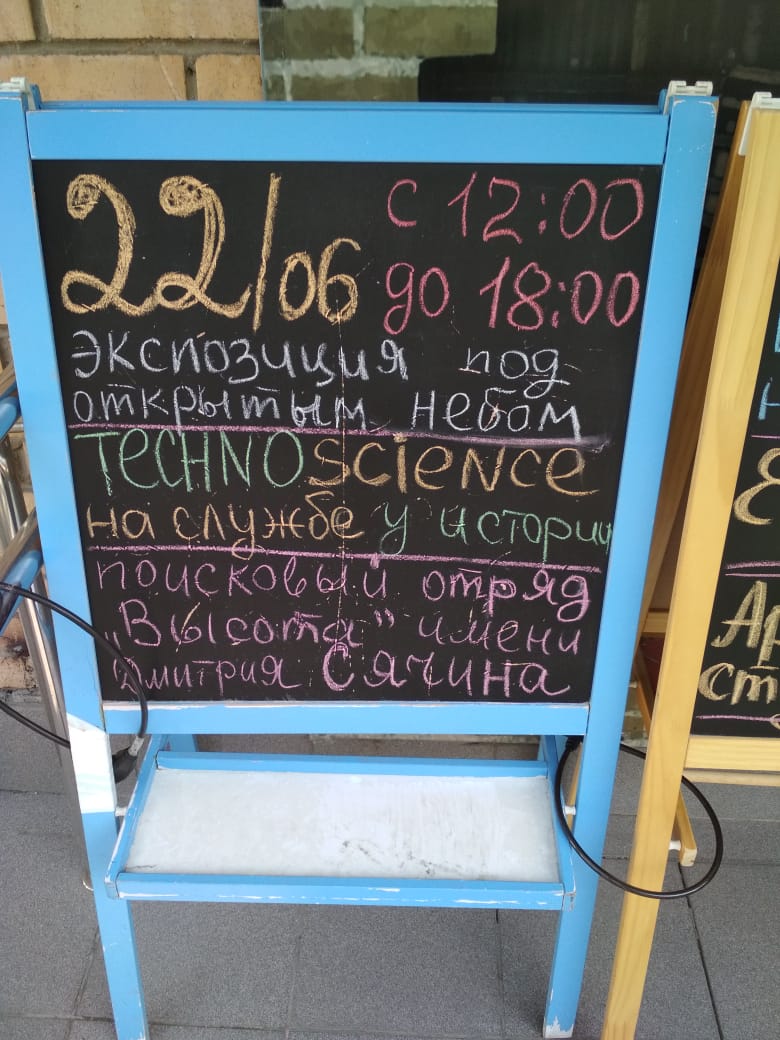 22/06 с 12:00
до 18:00
экспозиция под
открытым небом
TECHNOSCIENCE
на службе у истории
поисковый отряд
„Высота" имени
Дмитрия Сячина